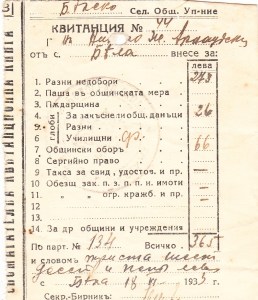 Бѣлско Сел. Общ. Уп-ние
КВИТАНЦИЯ № 44
отъ с. Бѣла внесе за:
лева
1. Разни недобори 273
2. Паша въ общинската мера
3. Пъдарщина
глоби
4. За закъснѣли общ. даньци 26
5. Разни
6. Училищни
7. Общински оборъ 66
8. Сергийно право
9. Такса за свид., удостов. и пр.
10. Обезщ. зак. п. з. п. п. имоти
11. " " огр. кражб. и пр.
14. За др. общини и учреждения
По парт. № 134 Всичко 365
и словомъ триста шест
десет и петь лева
с. Бѣла 18 VI 1935
Секр.-Бирникъ: